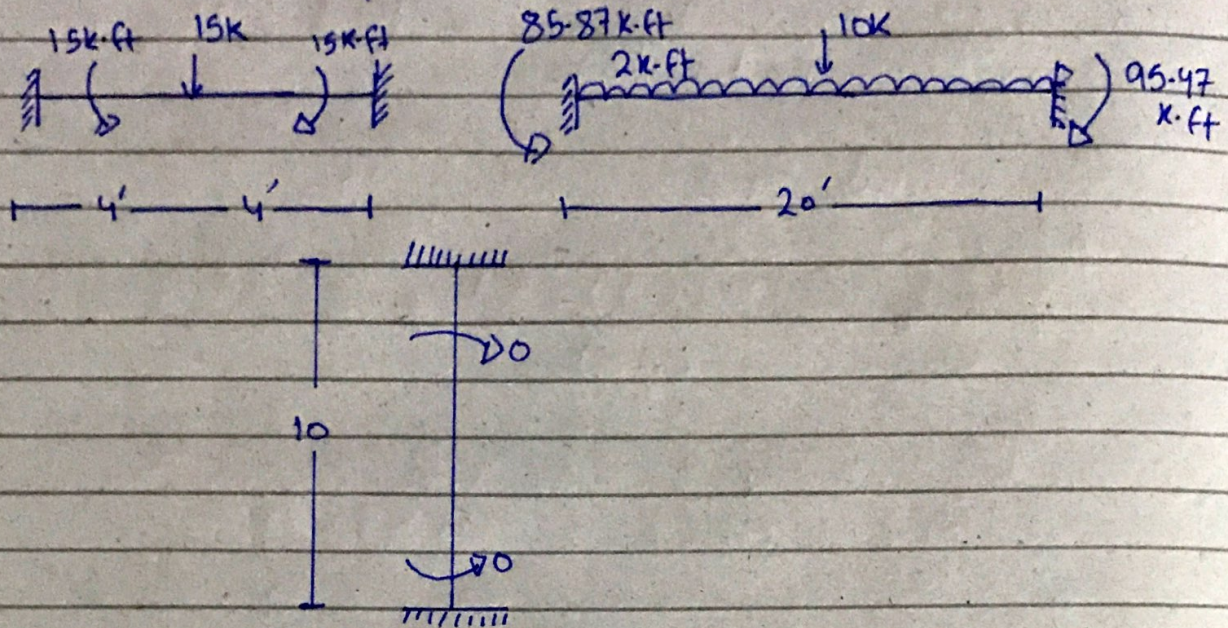 15k.ft 15k 15k.ft 85.87k.ft 10k
2k.ft 95.47
k.ft
4' 4' 20'
0
10
0